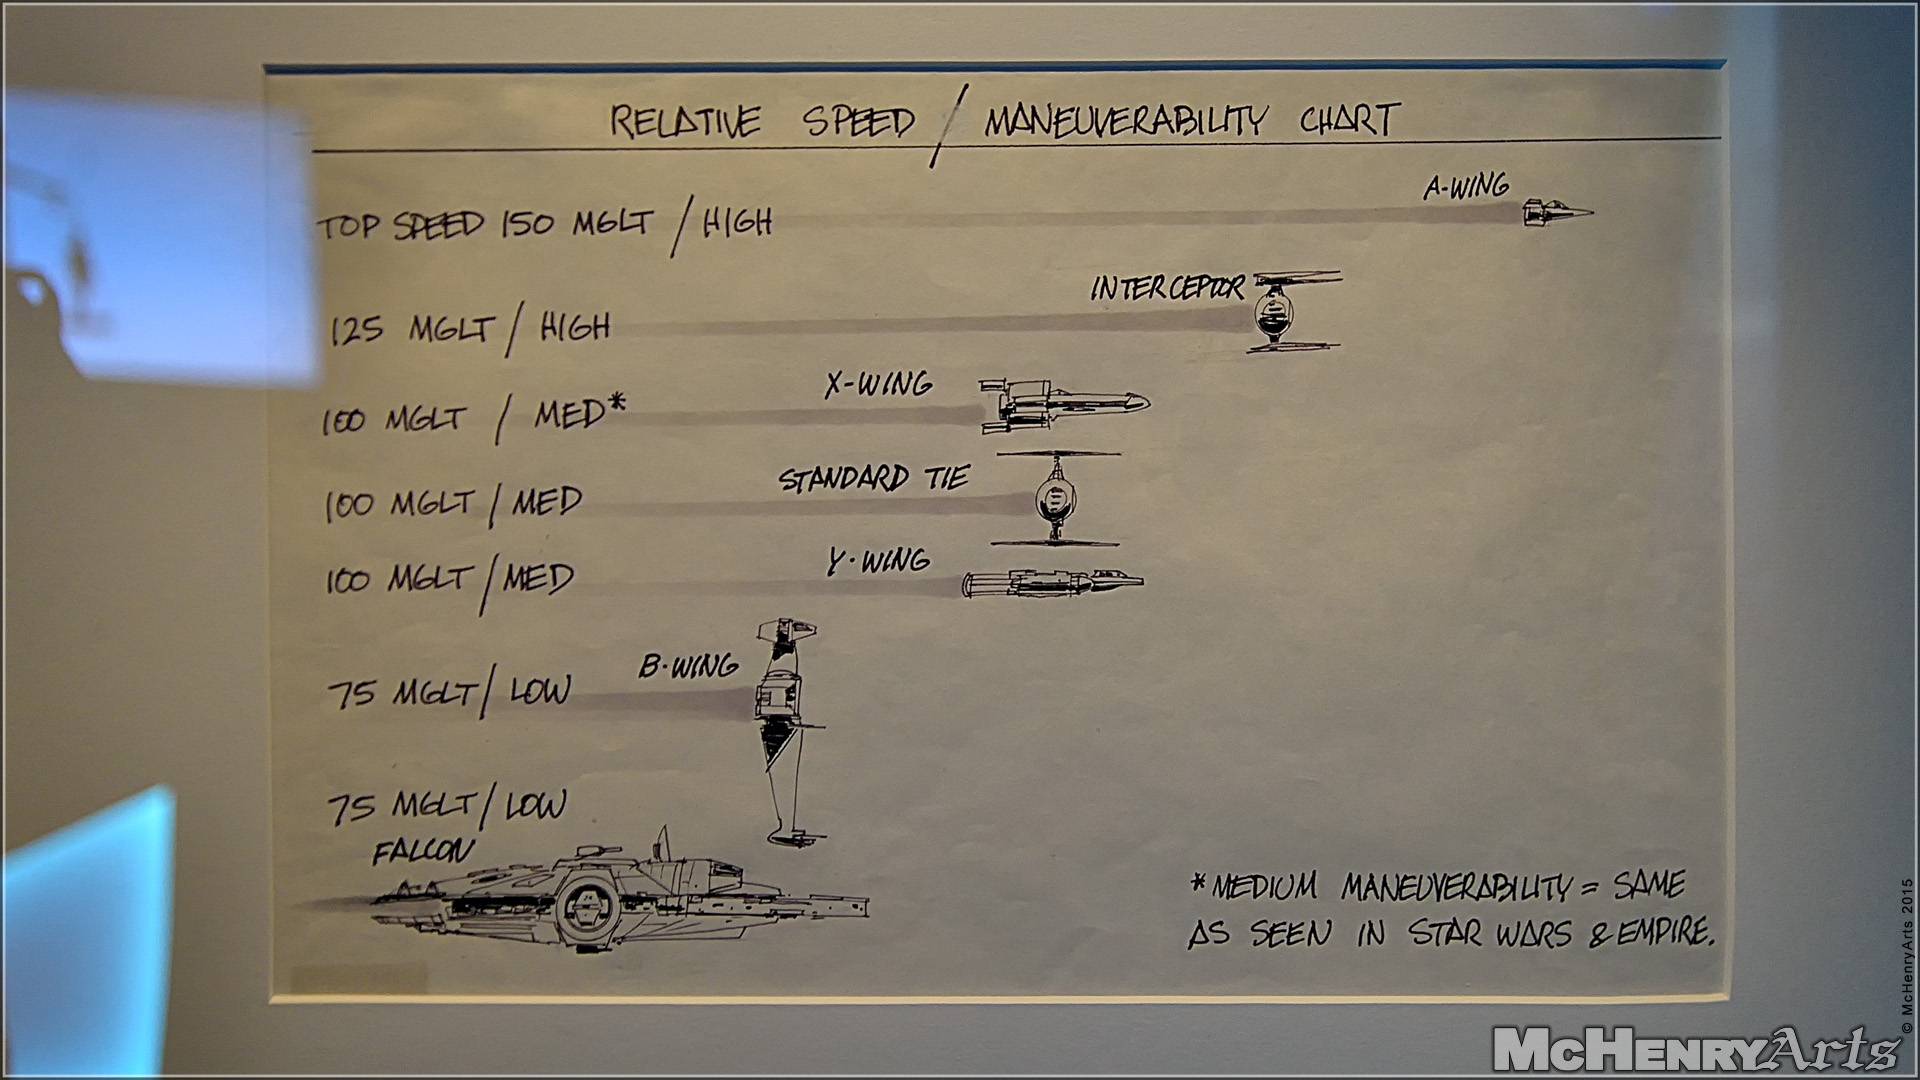 RELATIVE SPEED / MANEUVERABILITY CHART
A-WING
TOP SPEED 150 MGLT / HIGH
INTERCEPTOR
125 MGLT / HIGH
X-WING
100 MGLT / MED*
STANDARD TIE
100 MGLT / MED
Y-WING
100 MGLT / MED
B-WING
75 MGLT / LOW
75 MGLT / LOW
FALCON
*MEDIUM MANEUVERABILITY = SAME
AS SEEN IN STAR WARS & EMPIRE.
© McHenryArts 2015
McHenryArts